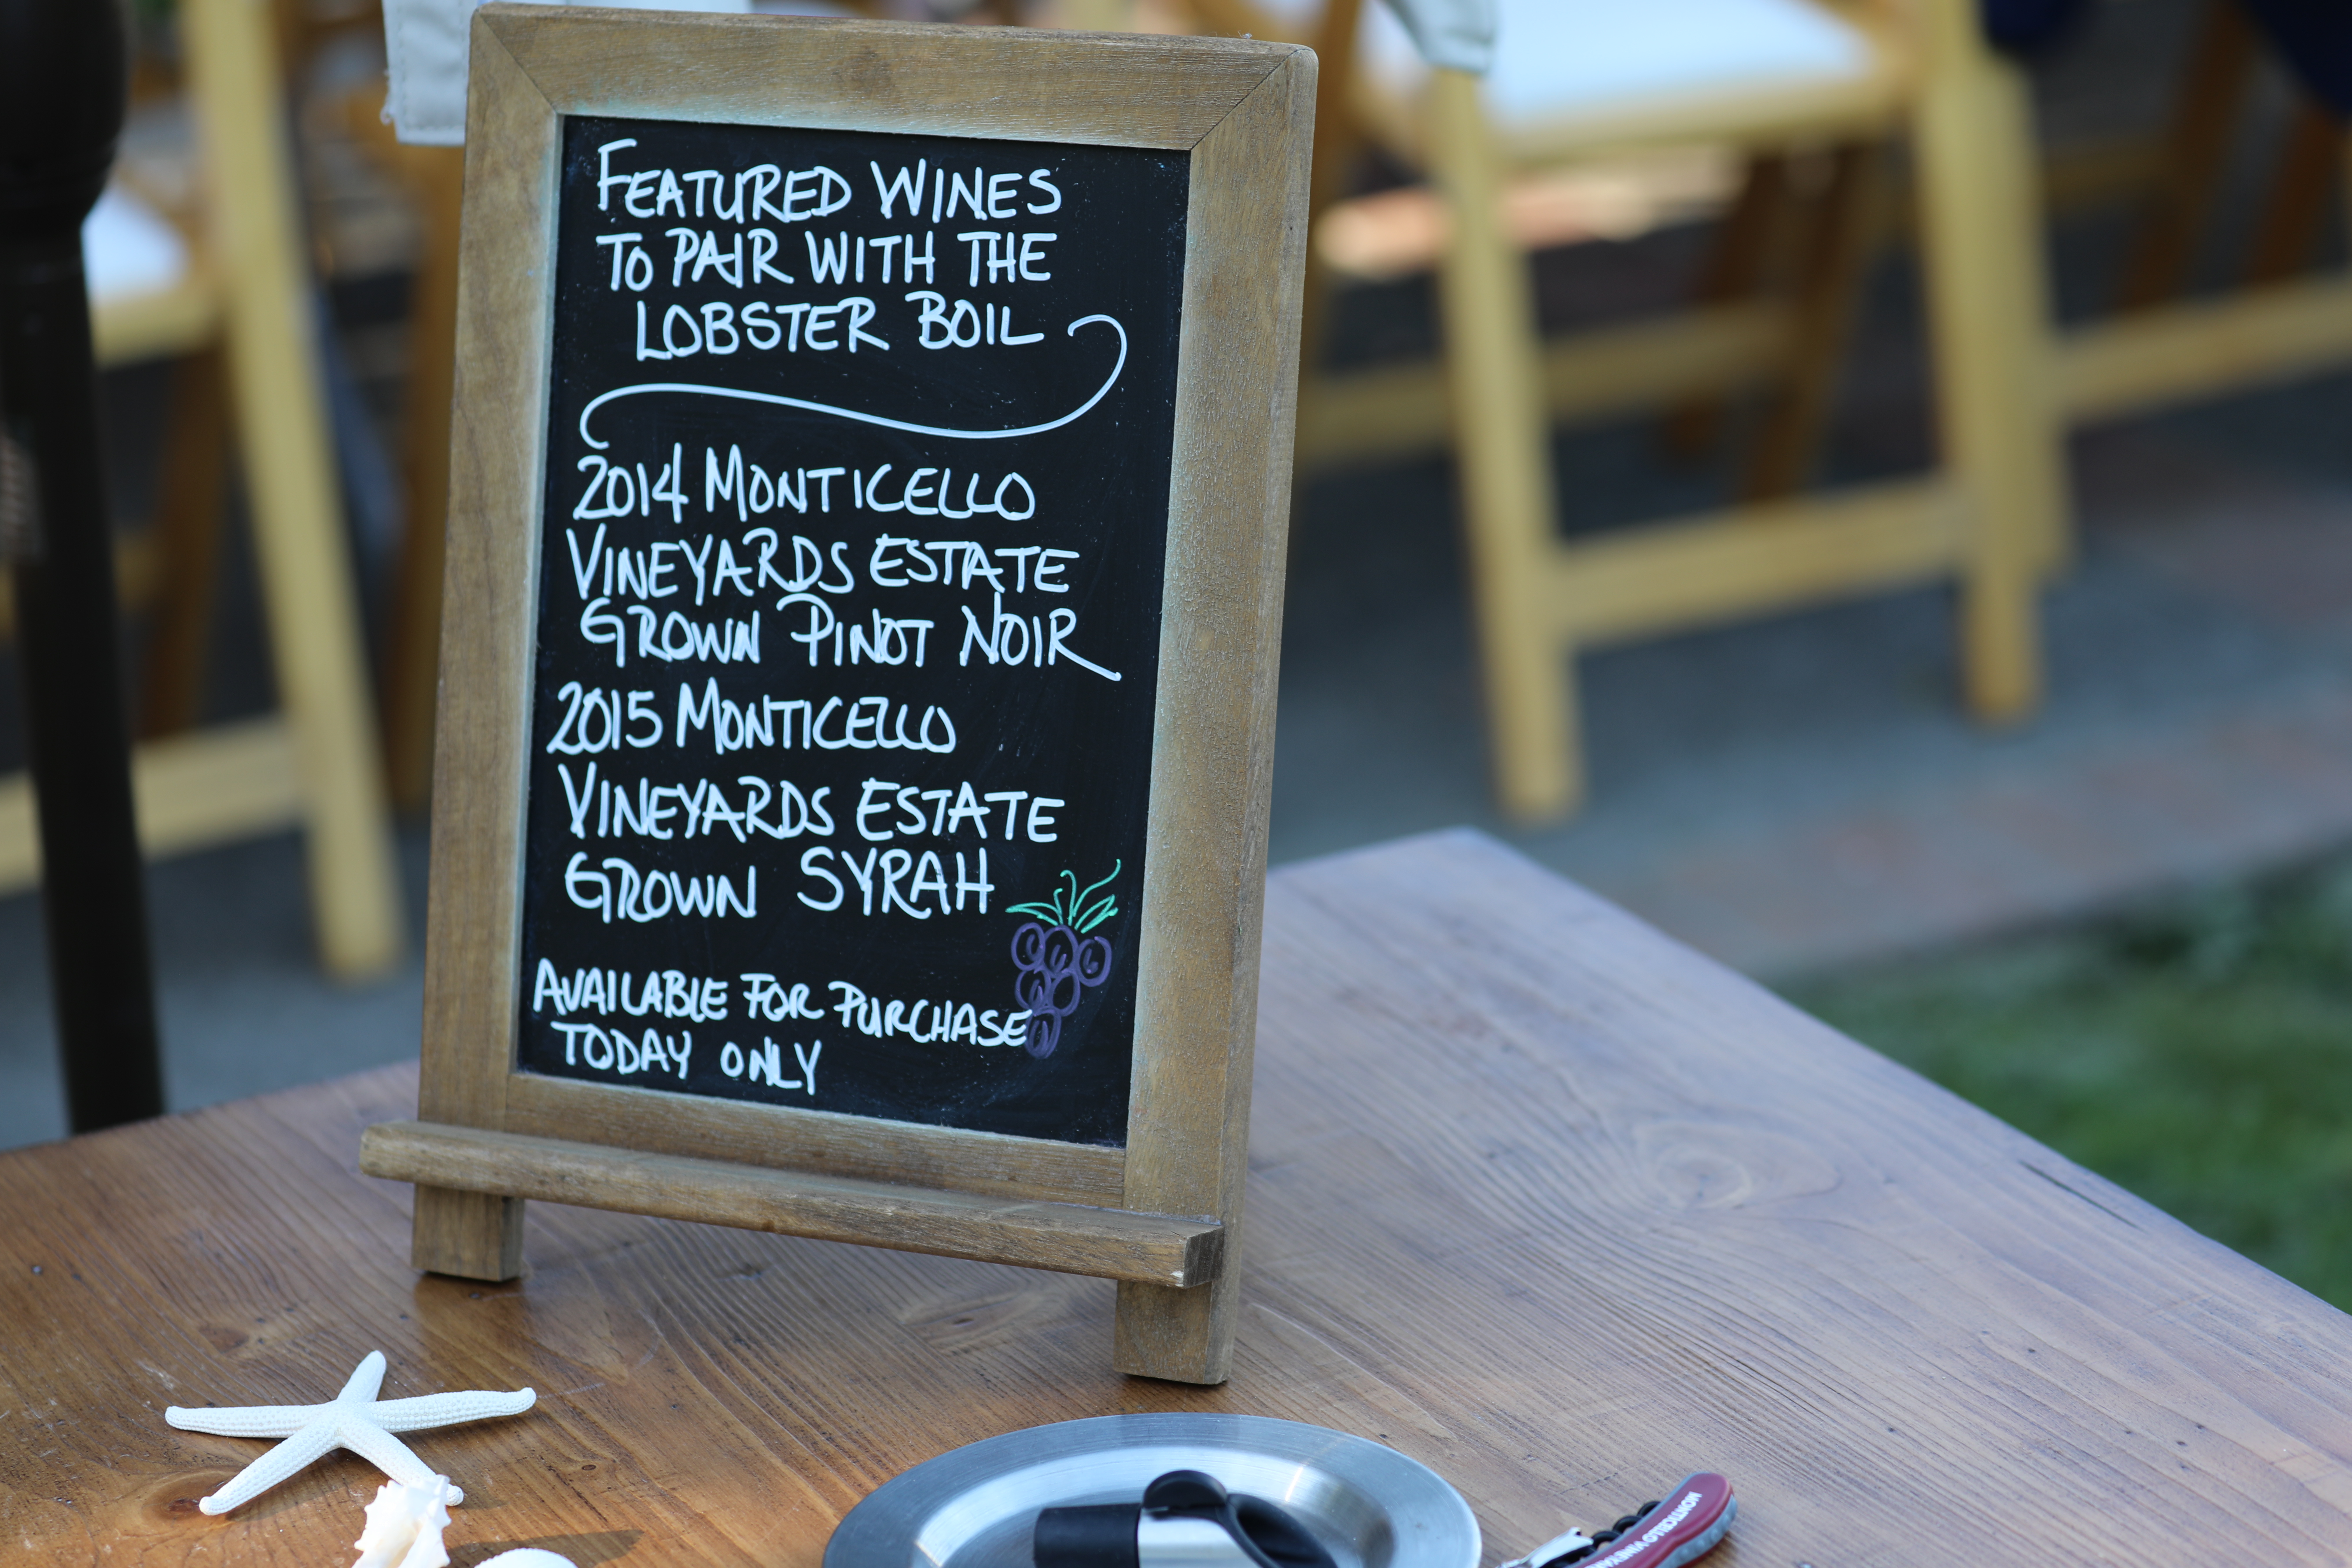 FEATURED WINES
TO PAIR WITH THE
LOBSTER BOIL
2014 MONTICELLO
VINEYARDS ESTATE
GROWN PINOT NOIR
2015 MONTICELLO
VINEYARDS ESTATE
GROWN SYRAH
AVAILABLE FOR PURCHASE
TODAY ONLY
MONTICELLO